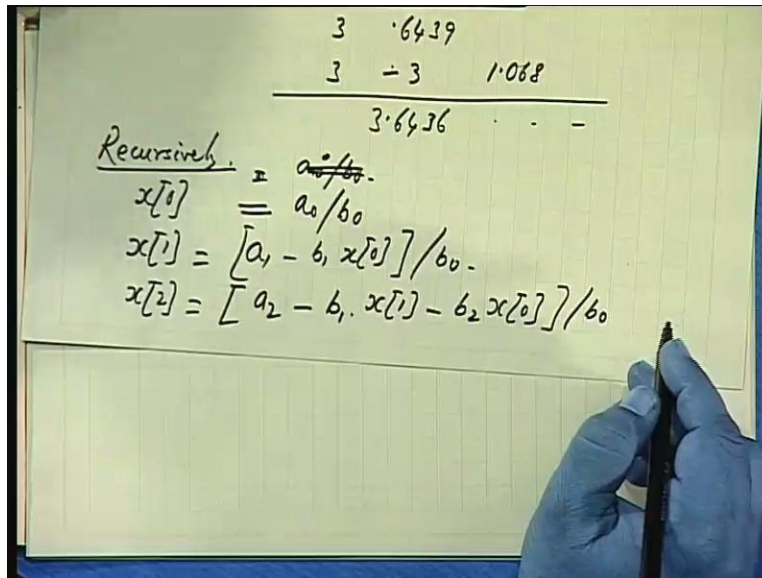 3 .6439
3 - 3 1.068
3.6436 . - -
Recursively.
x[0] = a0/b0
x[1] = [a1 - b1 x[0]]/b0.
x[2] = [a2 - b1. x[1] - b2 x[0]]/b0